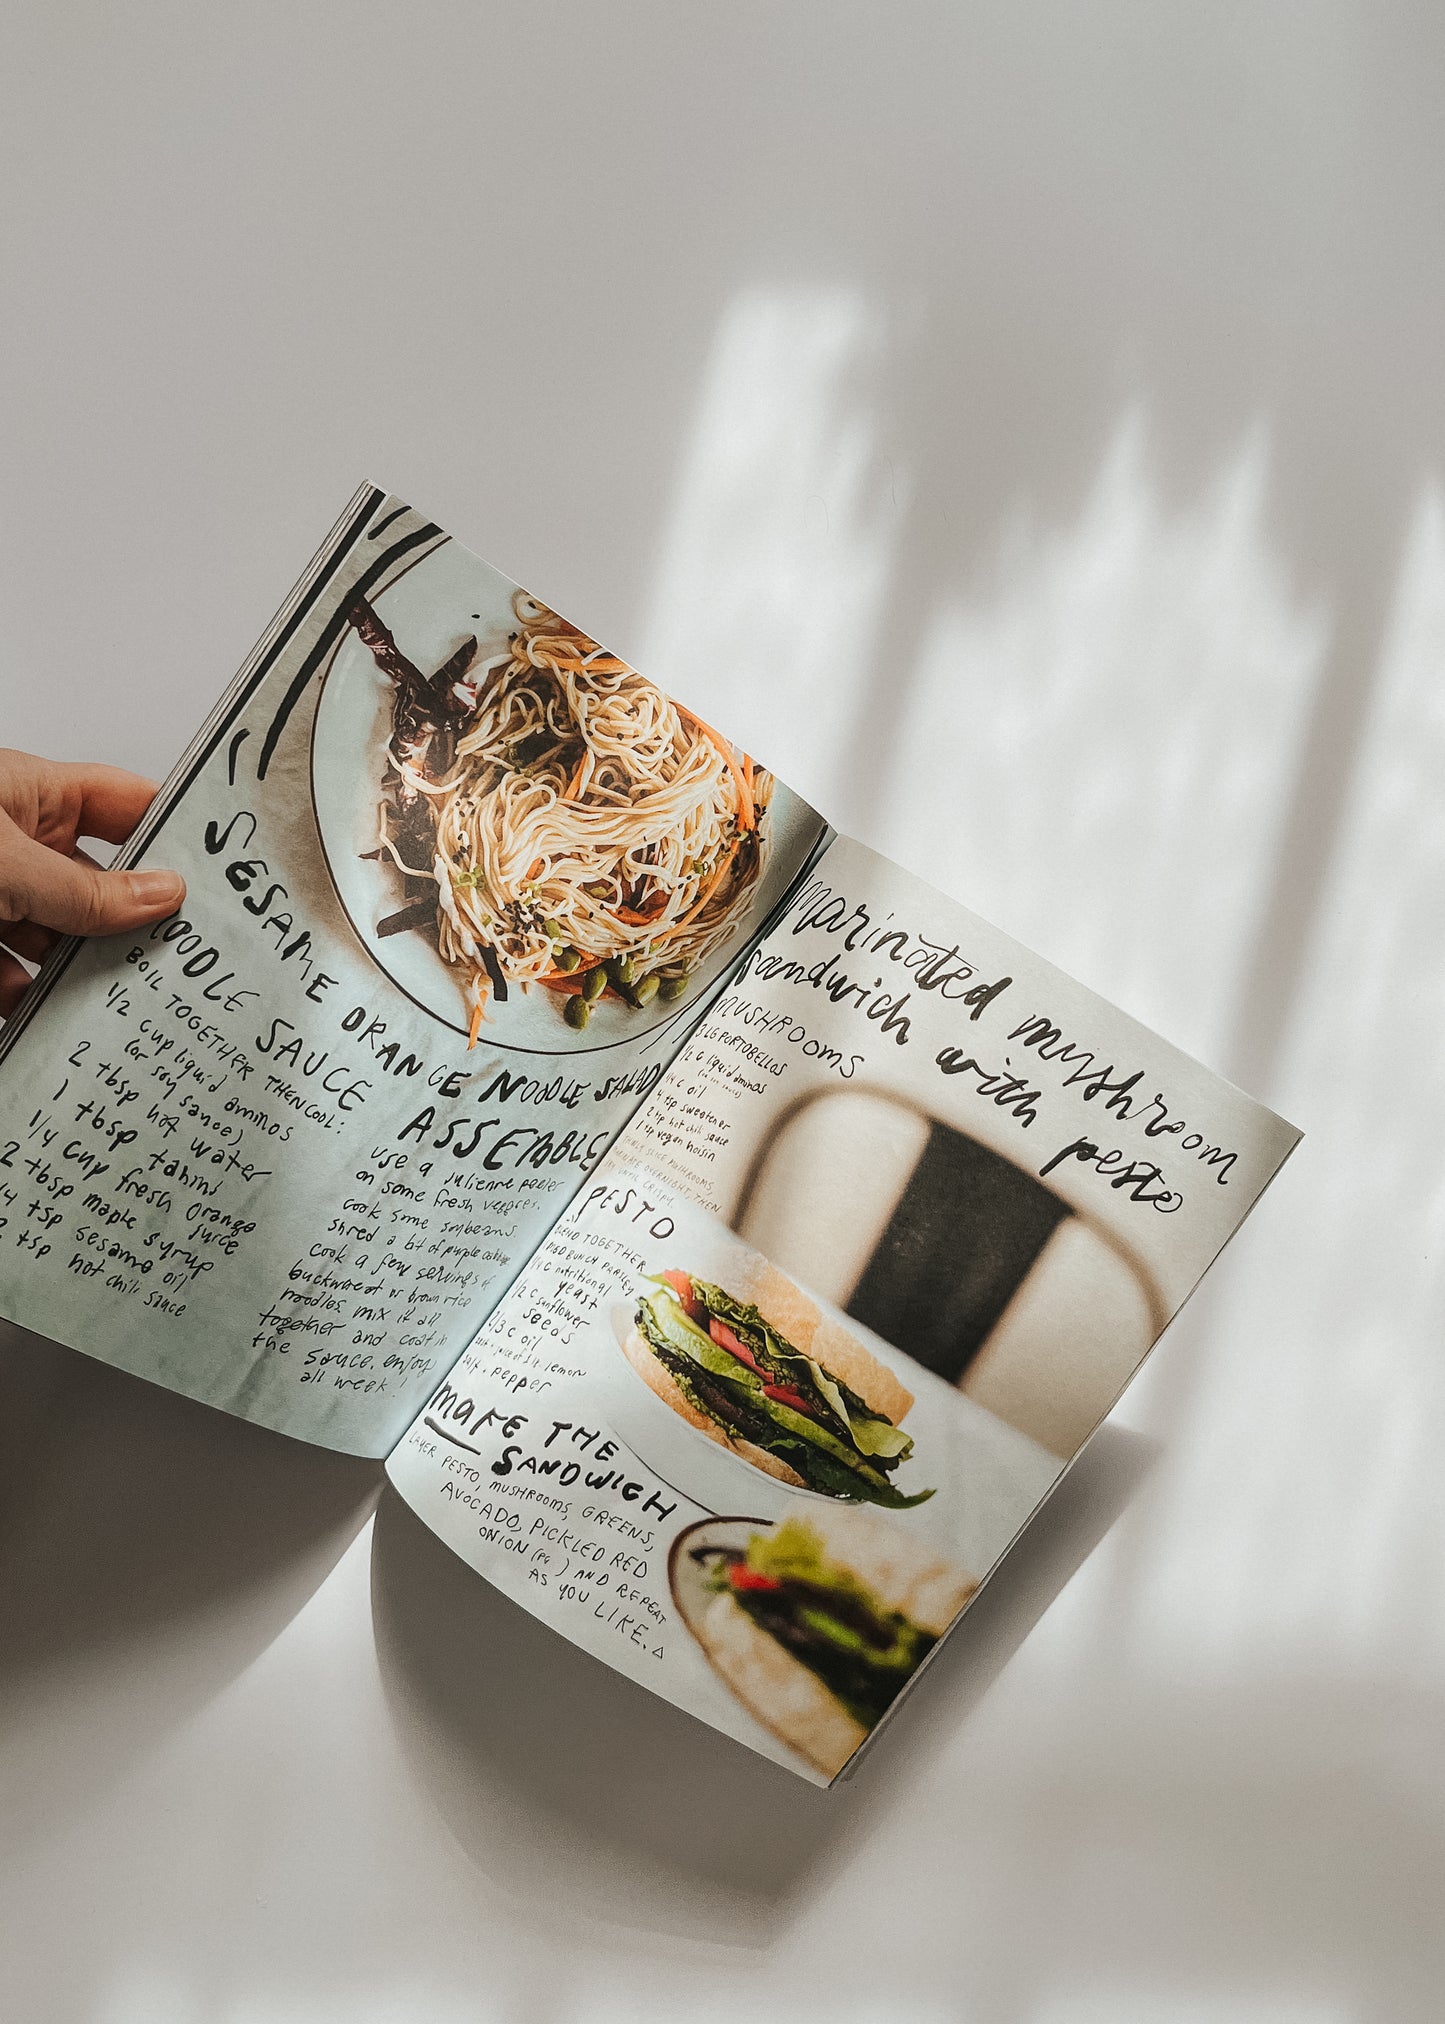 SESAME ORANGE NOODLE SALAD
NOODLE SAUCE
BOIL TOGETHER THEN COOL:
1/2 cup liquid aminos
(or soy sauce)
2 tbsp hot water
1 tbsp tahini
1/4 cup fresh orange
juice
2 tbsp maple syrup
1/4 tsp sesame oil
tsp hot chili sauce
ASSEMBLE
use a julienne peeler
on some fresh veggies.
cook some soybeans.
shred a bit of purple cabbage
cook a few servings of
buckwheat or brown rice
noodles. mix it all
together and coat in
the sauce. enjoy
all week!
marinated mushroom
sandwich with pesto
MUSHROOMS
3 LG PORTOBELLOS
1/2 c liquid aminos
(or soy sauce)
1/4 c oil
4 tsp sweetener
2 tsp hot chili sauce
1 tsp vegan hoisin
SLICE MUSHROOMS,
OVERNIGHT, THEN
UNTIL CRISPY.
PESTO
BLEND TOGETHER
BUNCH PARSLEY
1/4 c nutritional
yeast
1/2 c sunflower
seeds
1/3 c oil
juice of lemon
salt + pepper
MAKE THE
SANDWICH
LAYER PESTO, MUSHROOMS, GREENS,
AVOCADO, PICKLED RED
ONION (PG ) AND REPEAT
AS YOU LIKE.